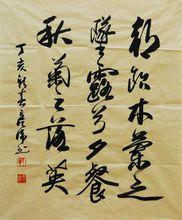 朝飲木蘭之
墜露兮夕餐
秋菊之落英
丁亥